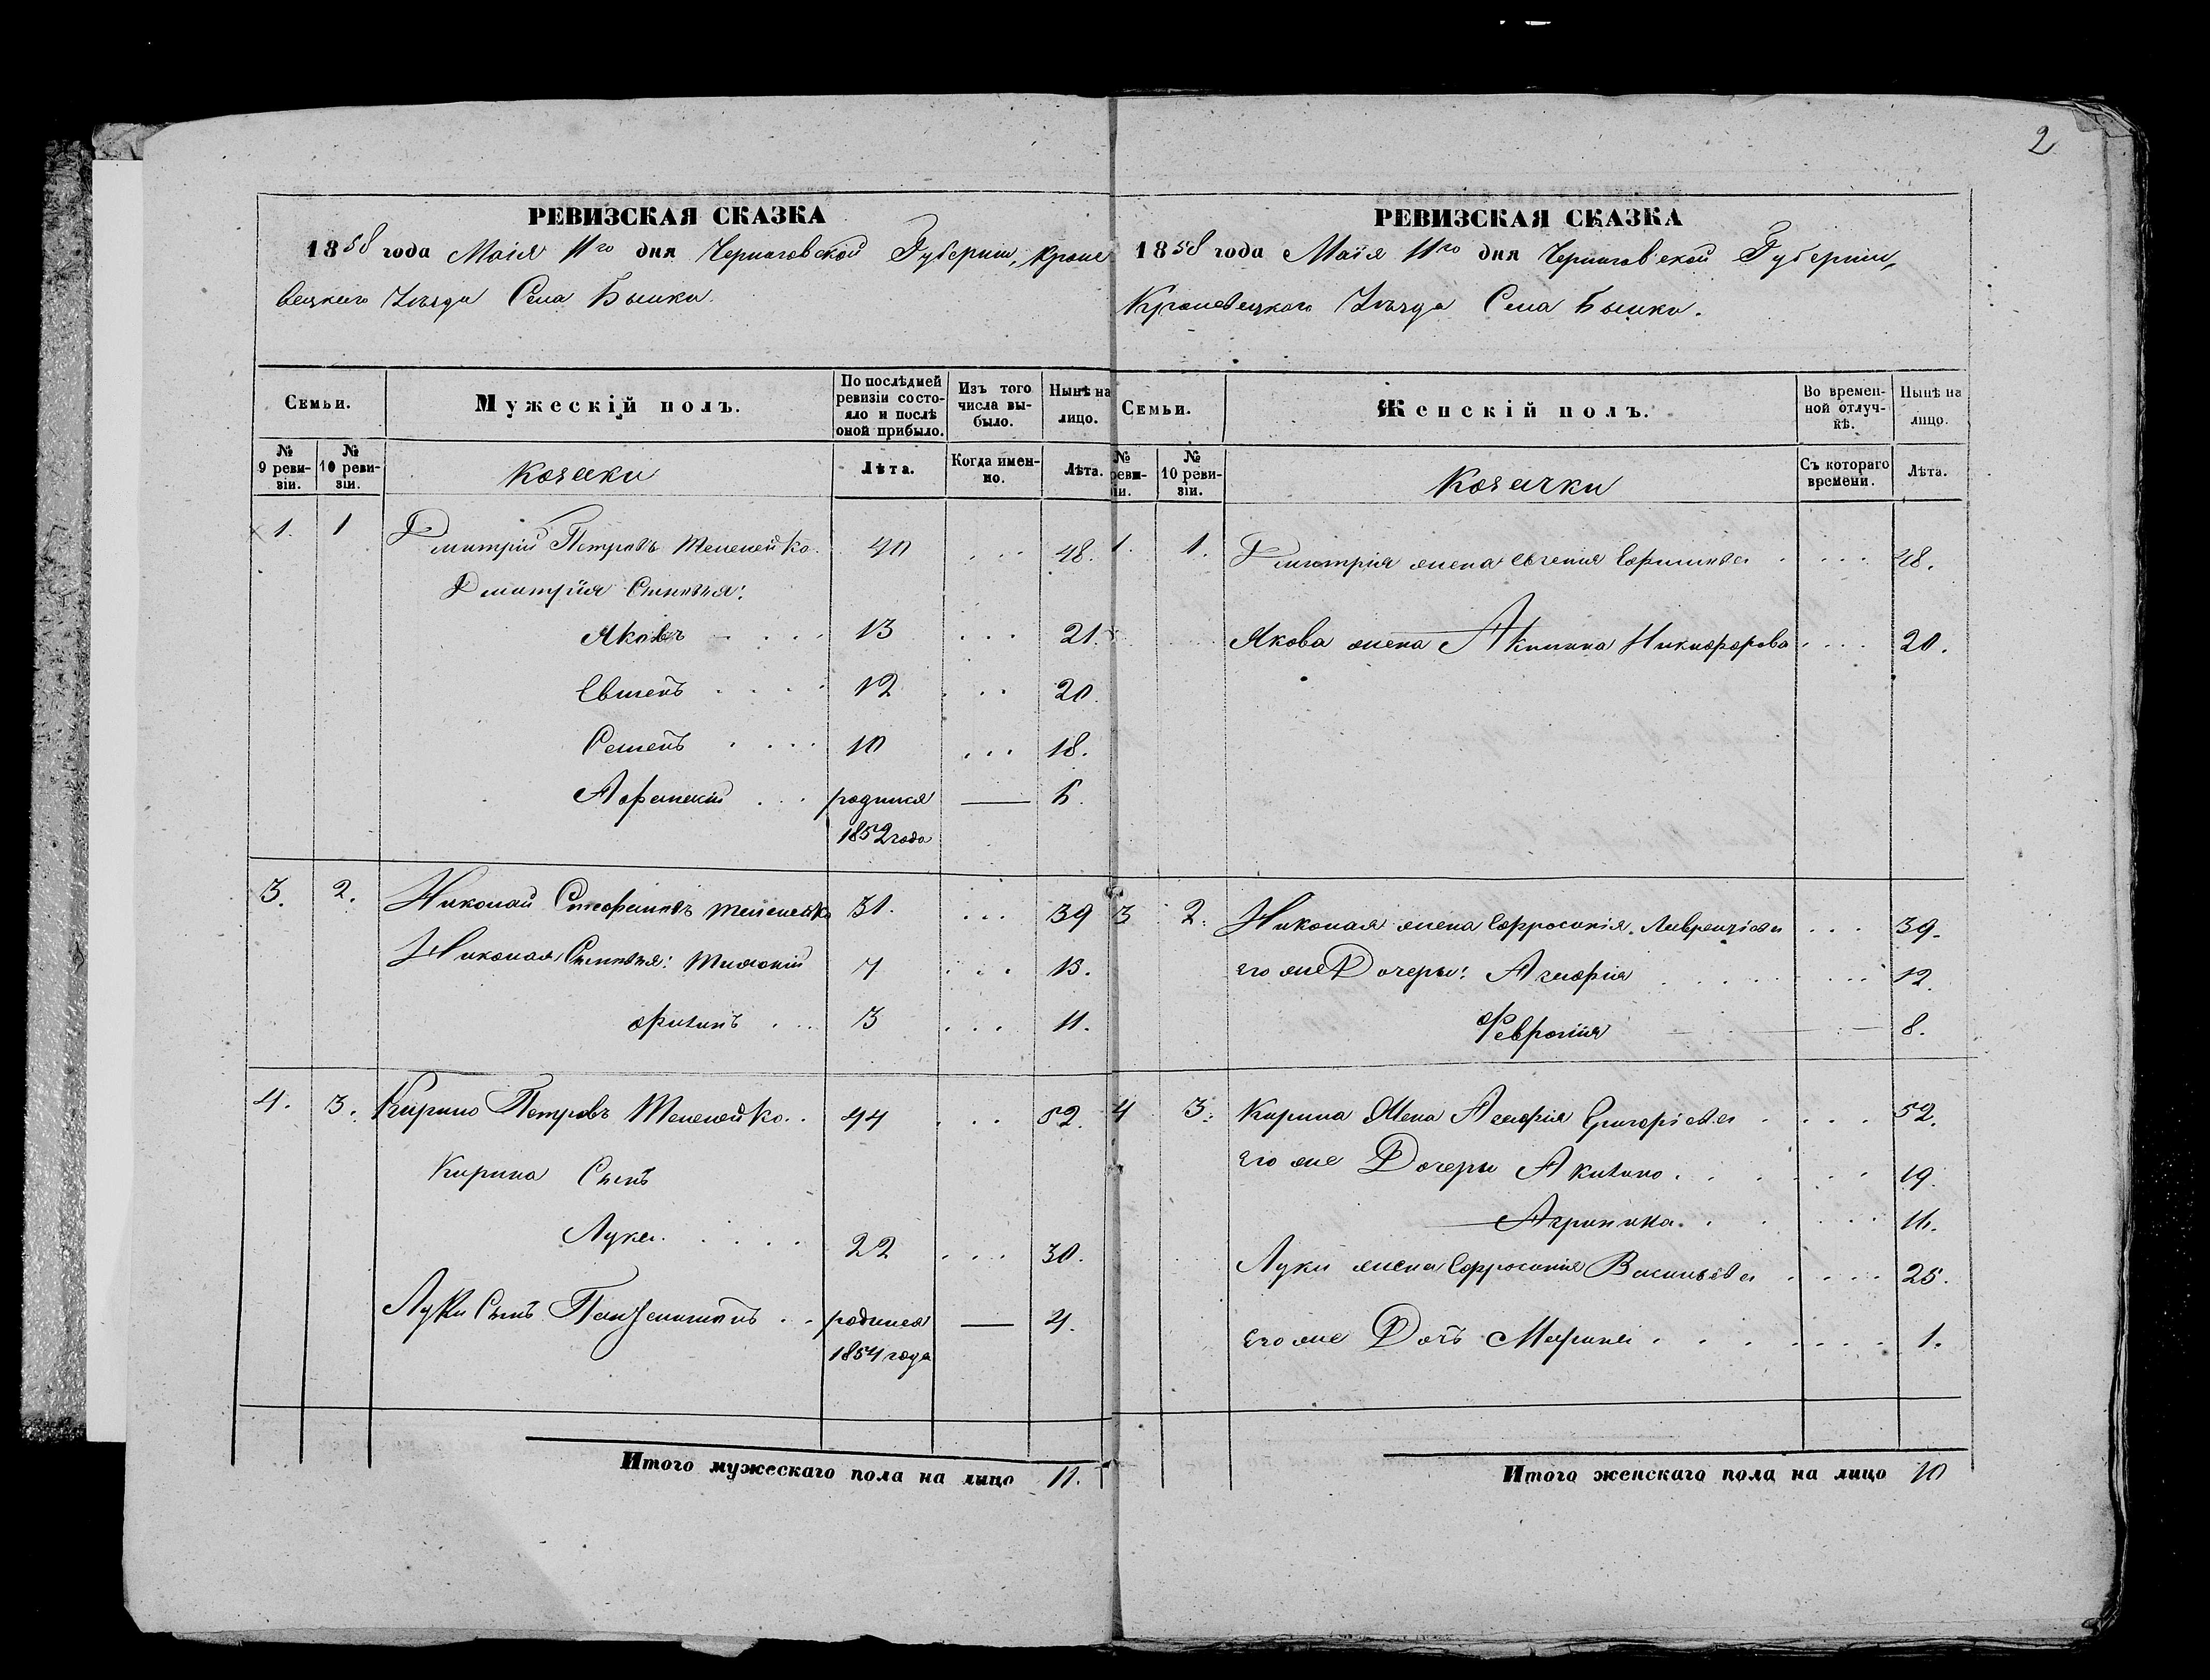 2
РЕВИЗСКАЯ СКАЗКА
1858 года Маія 11го дня Черниговской Губерніи, Кроле
вецкаго Уѣзда Села Быики.
Семьи.
Мужескій полъ.
По послѣдней ревизіи состояло и послѣ оной прибыло.
Изъ того числа выбыло.
Нынѣ на лицо.
№ 9 ревизіи.
№ 10 ревизіи.
Козаки
Лѣта.
Когда именно.
Лѣта.
1. 1 Дмитрій Петровъ 40 ... 48.
Дмитрія Сыновья:
Яковъ 13 ... 21.
12 ... 20.
Семенъ 10 ... 18.
родился — 6.
1852 года
3. 2. Николай Стефановъ 31. ... 39
Николая Сыновья: 7 ... 15.
3 ... 11.
4. 3. Кирило Петровъ 44 ... 52.
Кирила Сынъ
Лука 22 ... 30.
Луки Сынъ Пантелимонъ родился — 4.
1854 года
Итого мужескаго пола на лицо 11.
РЕВИЗСКАЯ СКАЗКА
1858 года Маія 11го дня Черниговской Губерніи,
Кролевецкаго Уѣзда Села Быики.
Семьи.
Женскій полъ.
Во временной отлучкѣ.
Нынѣ на лицо.
№ ревизіи.
№ 10 ревизіи.
Козачки
Съ котораго времени.
Лѣта.
1. 1. Дмитрія жена Евгенія Ефимова 48.
Якова жена Акилина Никифорова 20.
3 2. Николая жена Ефросинія Лаврентіева 39.
его же Дочери: Агафія 12.
Февронія 8.
4 3. Кирила Жена Агафія Григоріева 52.
его же Дочери 19.
Агрипина 16.
Луки жена Ефросинія Васильева 25.
его же Дочь Марина 1.
Итого женскаго пола на лицо 10